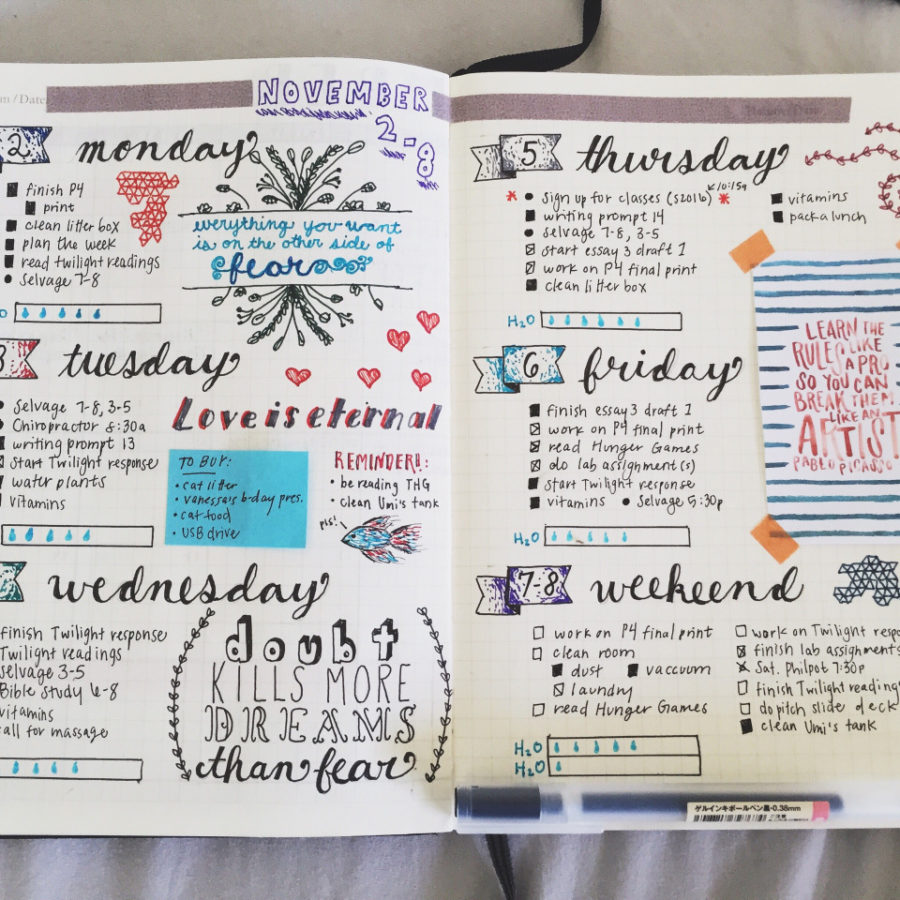 m / Date
NOVEMBER
2-8
2 monday
finish P4
print
clean litter box
plan the week
read twilight readings
Selvage 7-8
O
everything you want
is on the other side of
fear
3 tuesday
Selvage 7-8, 3-5
Chiropractor 8:30a
writing prompt 13
start Twilight response
water plants
vitamins
Love is eternal
TO BUY:
• cat litter
• vanessa's b-day pres.
• cat food
• USB drive
REMINDER!:
• be reading THG
• clean Umi's tank
pls!
wednesday
finish Twilight response
Twilight readings
Selvage 3-5
Bible Study 6-8
vitamins
call for massage
doubt
KILLS MORE
DREAMS
than fear
5 thursday
* • Sign up for classes (s2016) *
10:15a
writing prompt 14
• selvage 7-8, 3-5
start essay 3 draft 1
work on P4 final print
clean litter box
vitamins
pack a lunch
H2O
6 friday
finish essay 3 draft 1
work on P4 final print
read Hunger Games
do lab assignment(s)
start Twilight response
vitamins • Selvage 5:30p
H2O
LEARN THE
RULES LIKE
A PRO,
SO YOU CAN
BREAK THEM
LIKE AN
ARTIST
PABLO PICASSO
7-8 weekeend
work on P4 final print
clean room
dust vaccuum
laundry
read Hunger Games
work on Twilight respo
finish lab assignments
Sat. Philpot 7:30p
finish Twilight readings
do pitch slide deck
clean Umi's tank
H2O
H2O
ゲルインキボールペン黒・0.38mm